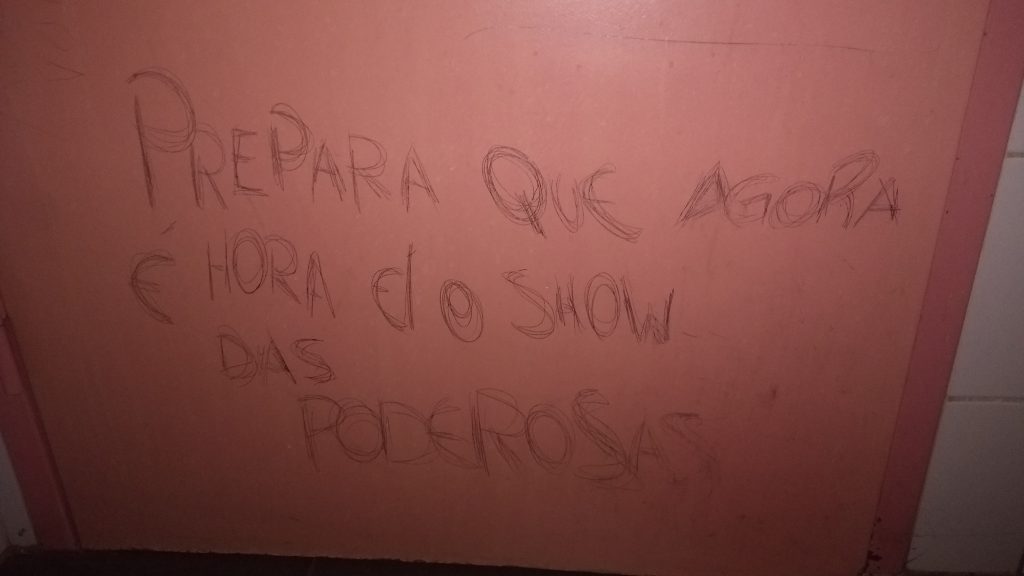 PREPARA QUE AGORA
É HORA dO SHOW
DAS
PODEROSAS